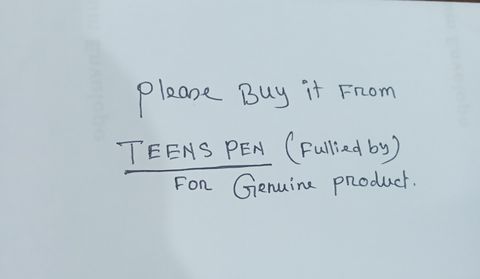 Please Buy it From
TEENS PEN (Fullied by)
FOR Genuine product.